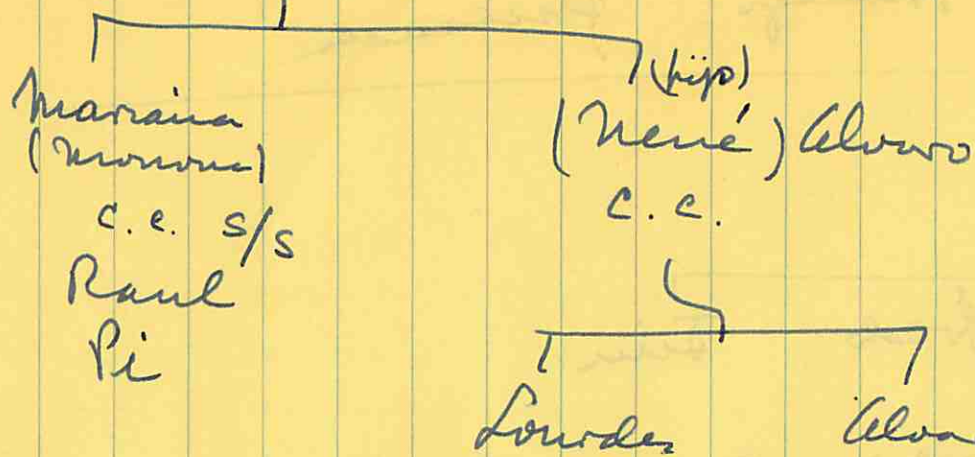 Mariana
(Monona)
c.c. s/s
Raul
Pi
(hijo)
(Nené) Alvaro
c.c.
Lourdes
Alva